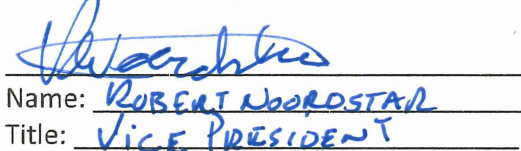 Name: ROBERT NOORDSTAR
Title: VICE PRESIDENT